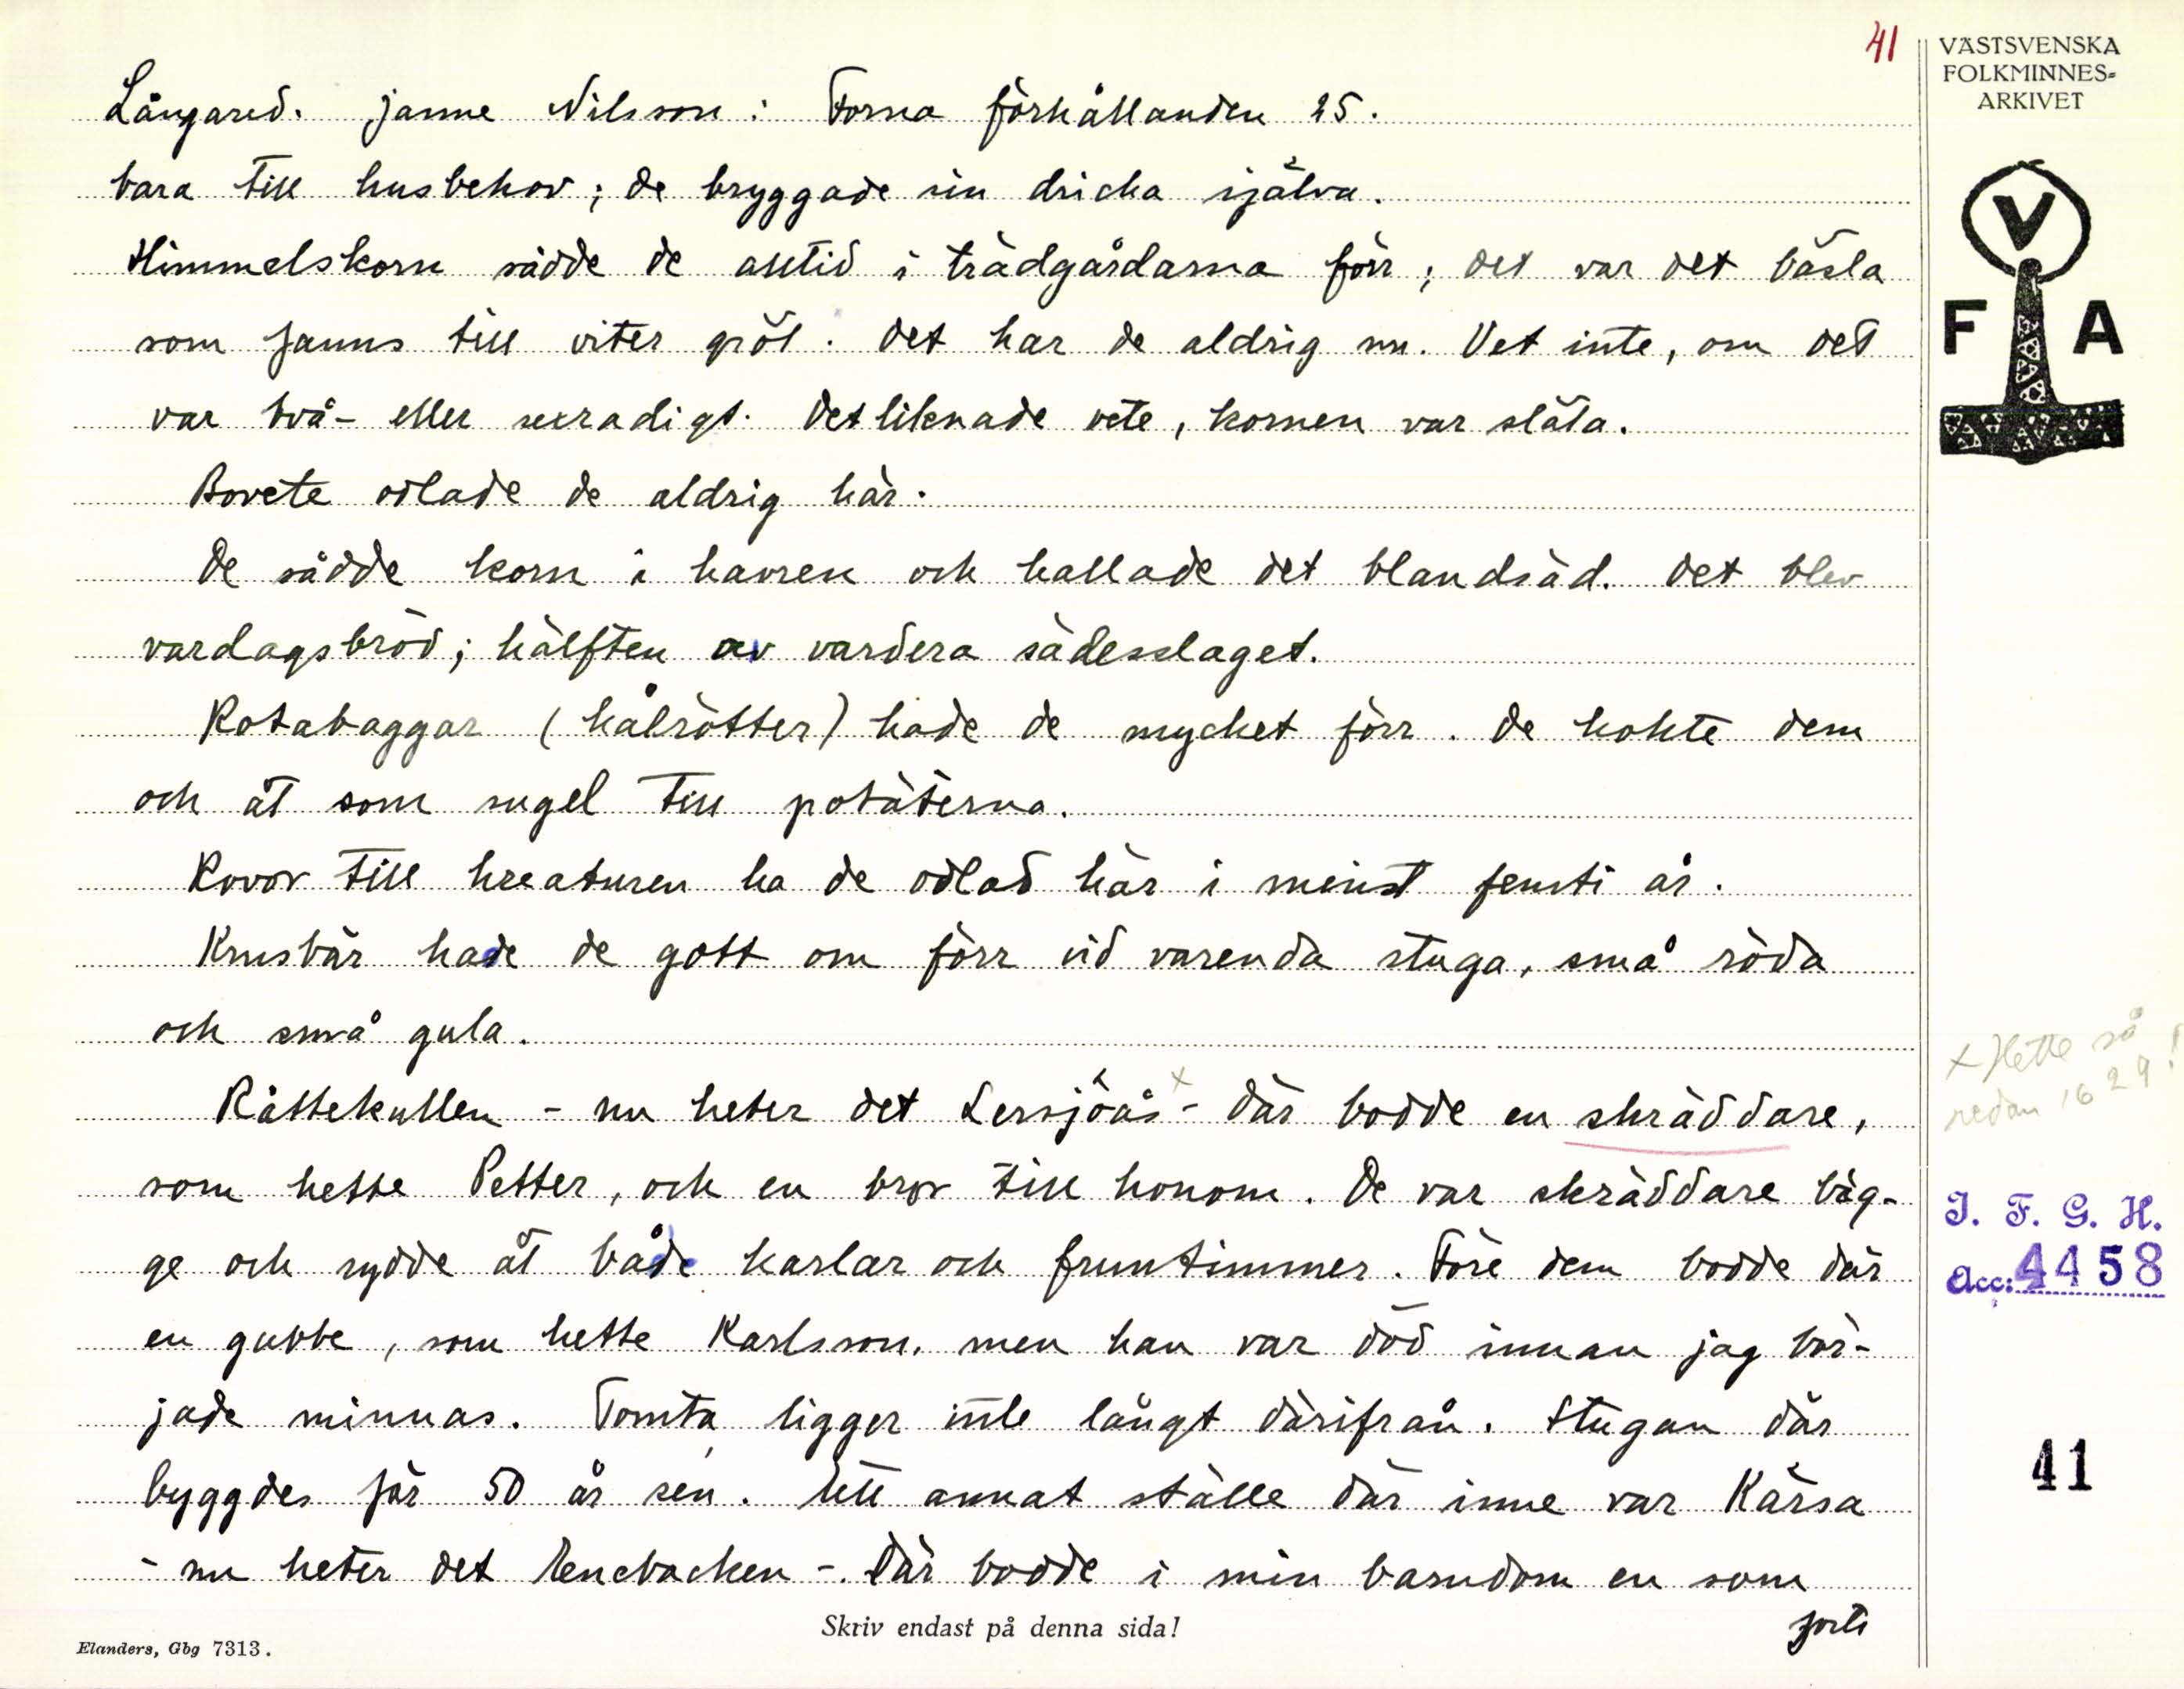 41
VÄSTSVENSKA
FOLKMINNES=
ARKIVET
Långared. Janne Nilsson: Forna förhållanden 25.
bara till husbehov; de bryggade sin dricka själva.
Himmelskorn sådde de alltid i trädgårdarna förr; det var det bästa
som fanns till viter gröt. Det har de aldrig nu. Vet inte, om det
var två- eller sexradigt. Det liknade vete, kornen var släta.
Bovete odlade de aldrig här.
De sådde korn i havren och kallade det blandsäd. Det blev
vardagsbröd; hälften av vardera sädesslaget.
Rotabaggar (kålrötter) hade de mycket förr. De kokte dem
och åt som sugel till potäterna.
Rovor till kreaturen ha de odlad här i minst femti år.
Krusbär hade de gott om förr vid varenda stuga, små röda
och små gula.
Råttekullen - nu heter det Lersjöås x - där bodde en skräddare,
som hette Petter, och en bror till honom. De var skräddare bäg-
ge och sydde åt både karlar och fruntimmer. Före dem bodde där
en gubbe, som hette Karlsson, men han var död innan jag bör-
jade minnas. Tomta ligger inte långt därifrån. Stugan där
byggdes för 50 år sen. Ett annat ställe där inne var Kärsa
- nu heter det Tenebacken -. Där bodde i min barndom en som
forts
x Hette så
redan 1629!
I. F. G. H.
Acc: 4458
41
V
F A
Skriv endast på denna sida!
Elanders, Gbg 7313.